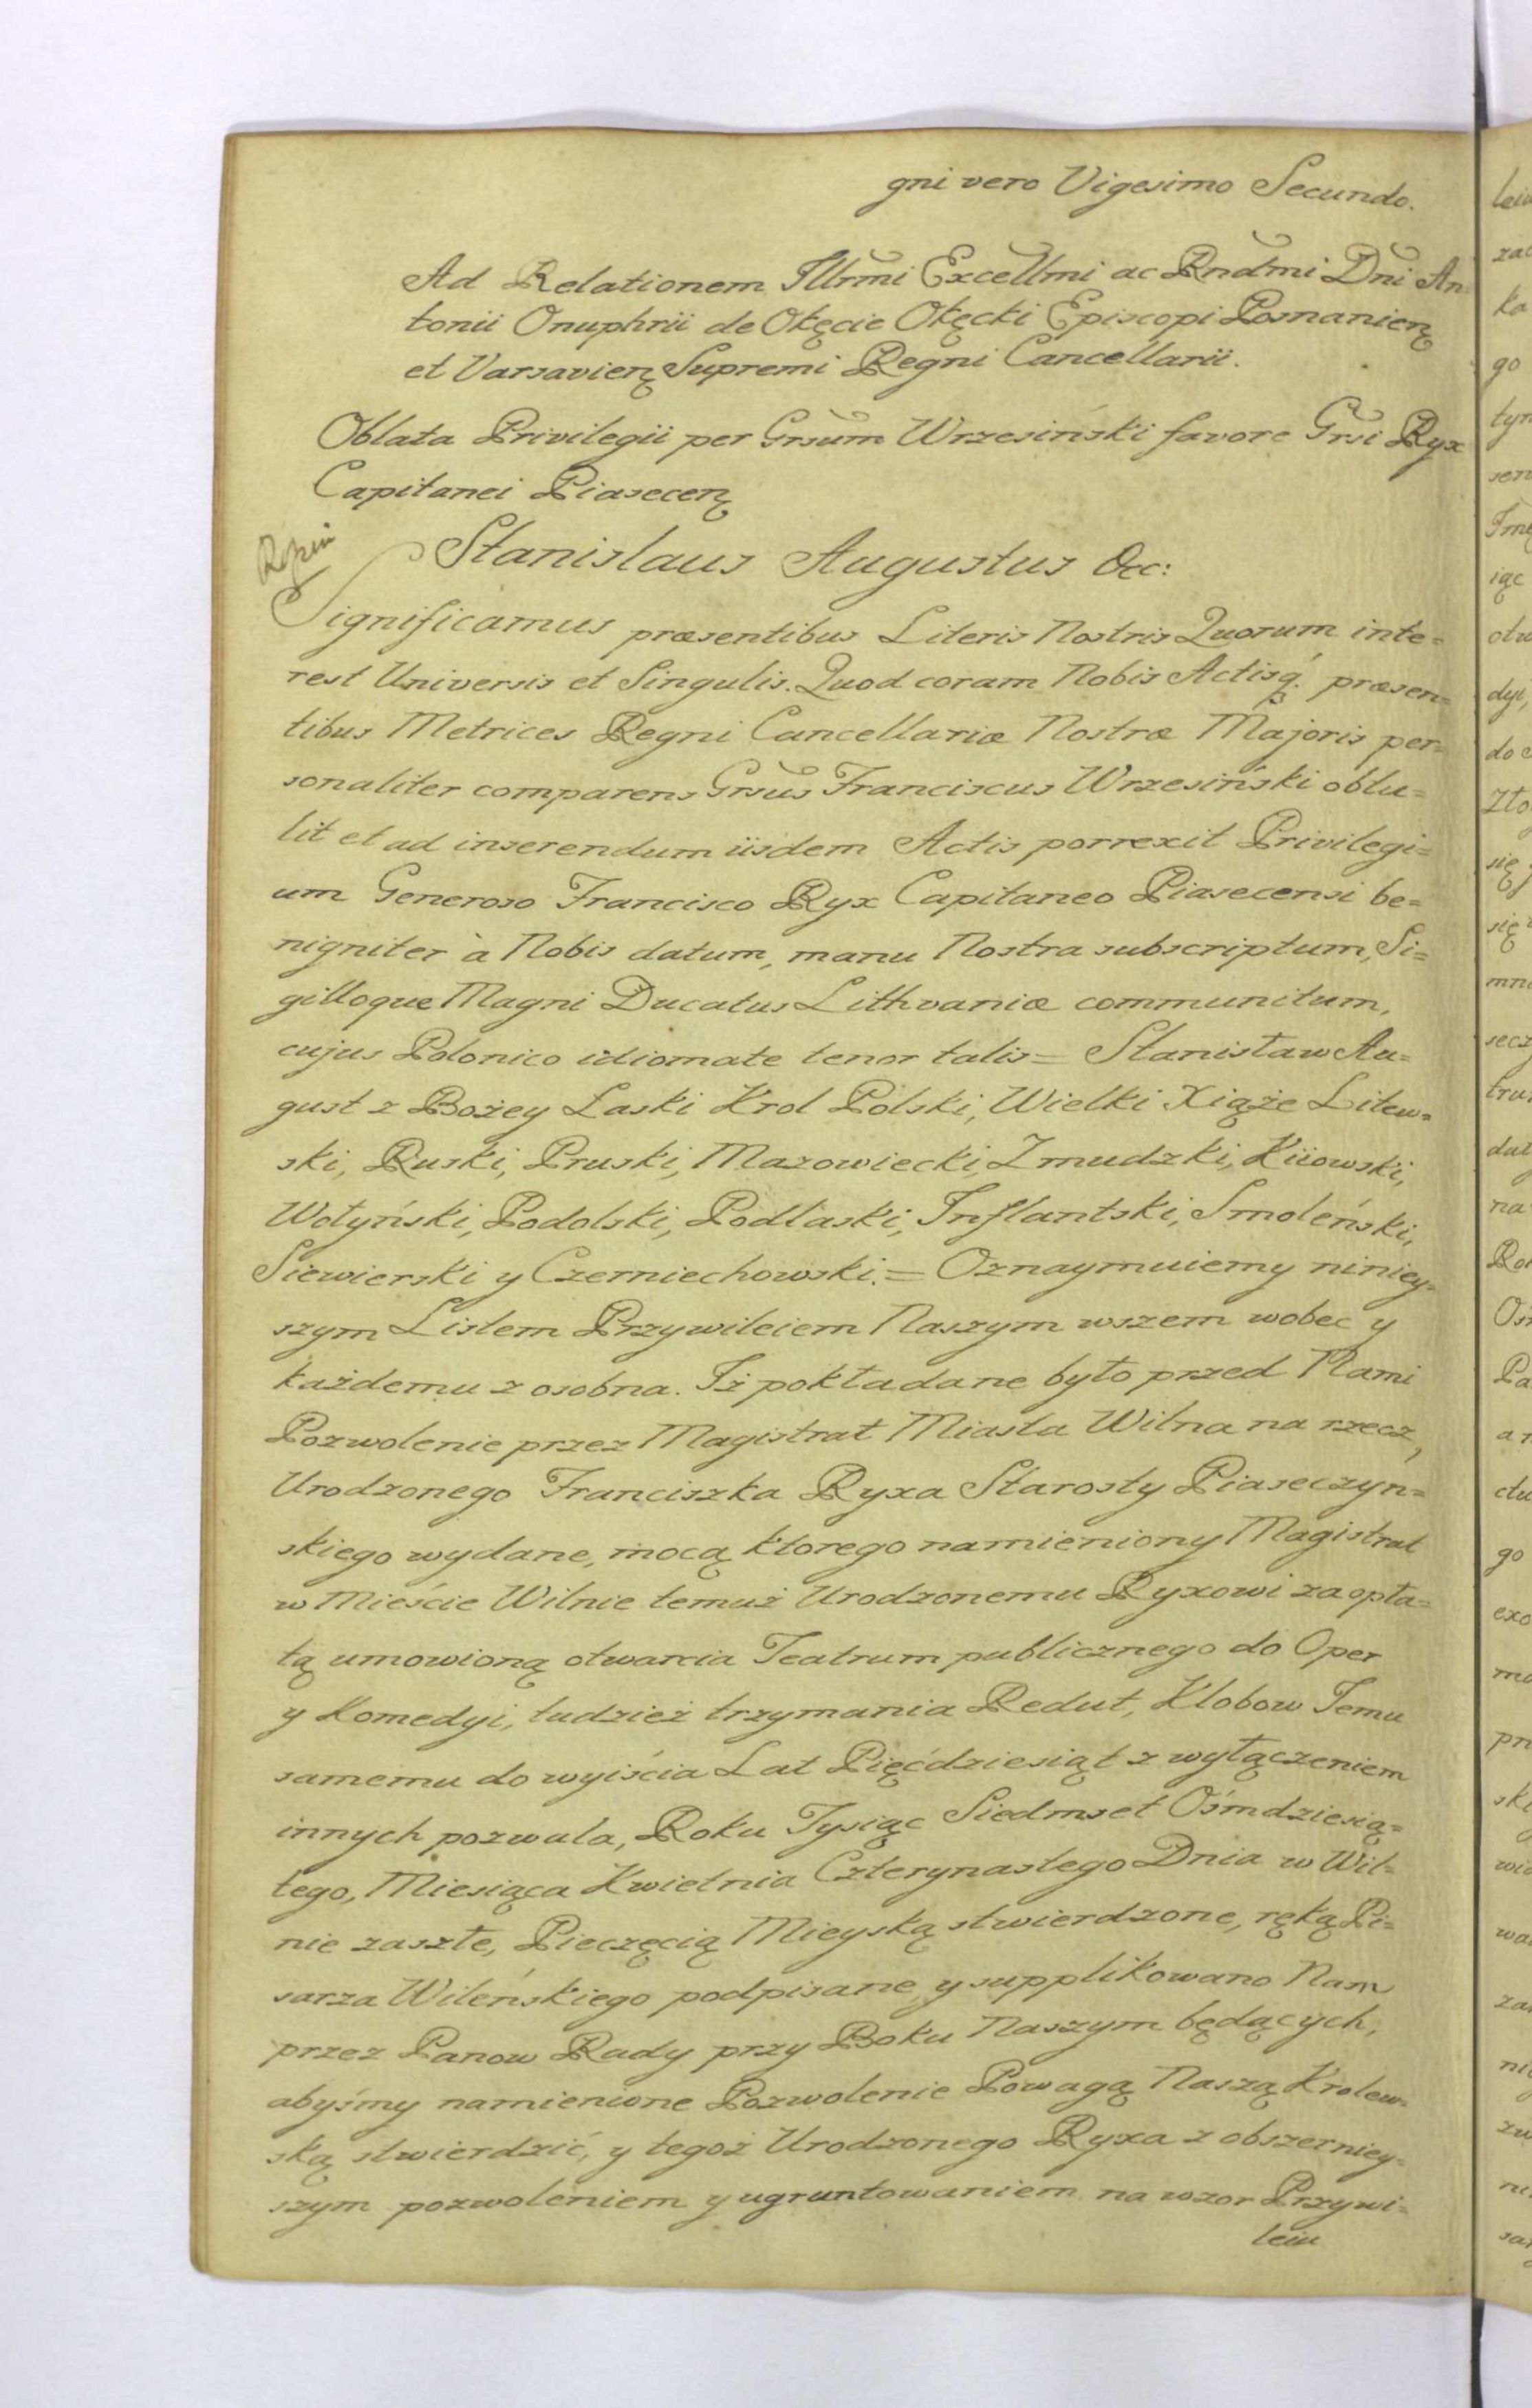 gni vero Vigesimo Secundo.
Ad Relationem Illrmi Excellmi ac Rndmi Dni An-
tonii Onuphrii de Okęcie Okęcki Episcopi Posnanien
et Varsavien Supremi Regni Cancellarii.
Oblata Privilegii per Grsum Wrzesiński favore Grsi Ryx
Capitanei Piasecen
Stanislaus Augustus &c:
Significamus præsentibus Literis Nostris Quorum inte=
rest Universis et Singulis. Quod coram Nobis Actisq. præsen=
tibus Metrices Regni Cancellariæ Nostræ Majoris per=
sonaliter comparens Grsus Franciscus Wrzesiński obtu=
lit et ad inserendum iisdem Actis porrexit Privilegi=
um Generoso Francisco Ryx Capitaneo Piasecensi be=
nigniter à Nobis datum, manu Nostra subscriptum, Si=
gilloque Magni Ducatus Lithvaniæ communitum,
cujus Polonico idiomate tenor talis = Stanisław Au=
gust z Bożey Łaski Krol Polski, Wielki Xiąże Litew=
ski, Ruski, Pruski, Mazowiecki, Zmudzki, Kiiowski,
Wołyński, Podolski, Podlaski, Inflantski, Smoleński,
Siewierski y Czerniechowski. = Oznaymuiemy niniey=
szym Listem Przywileiem Naszym wszem wobec y
każdemu z osobna. Iż pokładane było przed Nami
Pozwolenie przez Magistrat Miasta Wilna na rzecz,
Urodzonego Franciszka Ryxa Starosty Piaseczyn=
skiego wydane, mocą ktorego namieniony Magistrat
w Mieście Wilnie temuż Urodzonemu Ryxowi za opła=
tą umowioną otwarcia Teatrum publicznego do Oper
y Komedyi, tudzież trzymania Redut, Klobow Temu
samemu do wyiścia Lat Pięćdziesiąt z wyłączeniem
innych pozwala, Roku Tysiąc Siedmset Ośmdziesią=
tego, Miesiąca Kwietnia Czterynastego Dnia w Wil=
nie zaszłe, Pieczęcią Mieyską stwierdzone, ręką Pi=
sarza Wileńskiego podpisane, y supplikowano Nam
przez Panow Rady przy Boku Naszym będących,
abyśmy namienione Pozwolenie Powagą Naszą Krolew=
ską stwierdzić, y tegoż Urodzonego Ryxa z obszerniey=
szym pozwoleniem y ugruntowaniem na wzor Przywi=
leiu